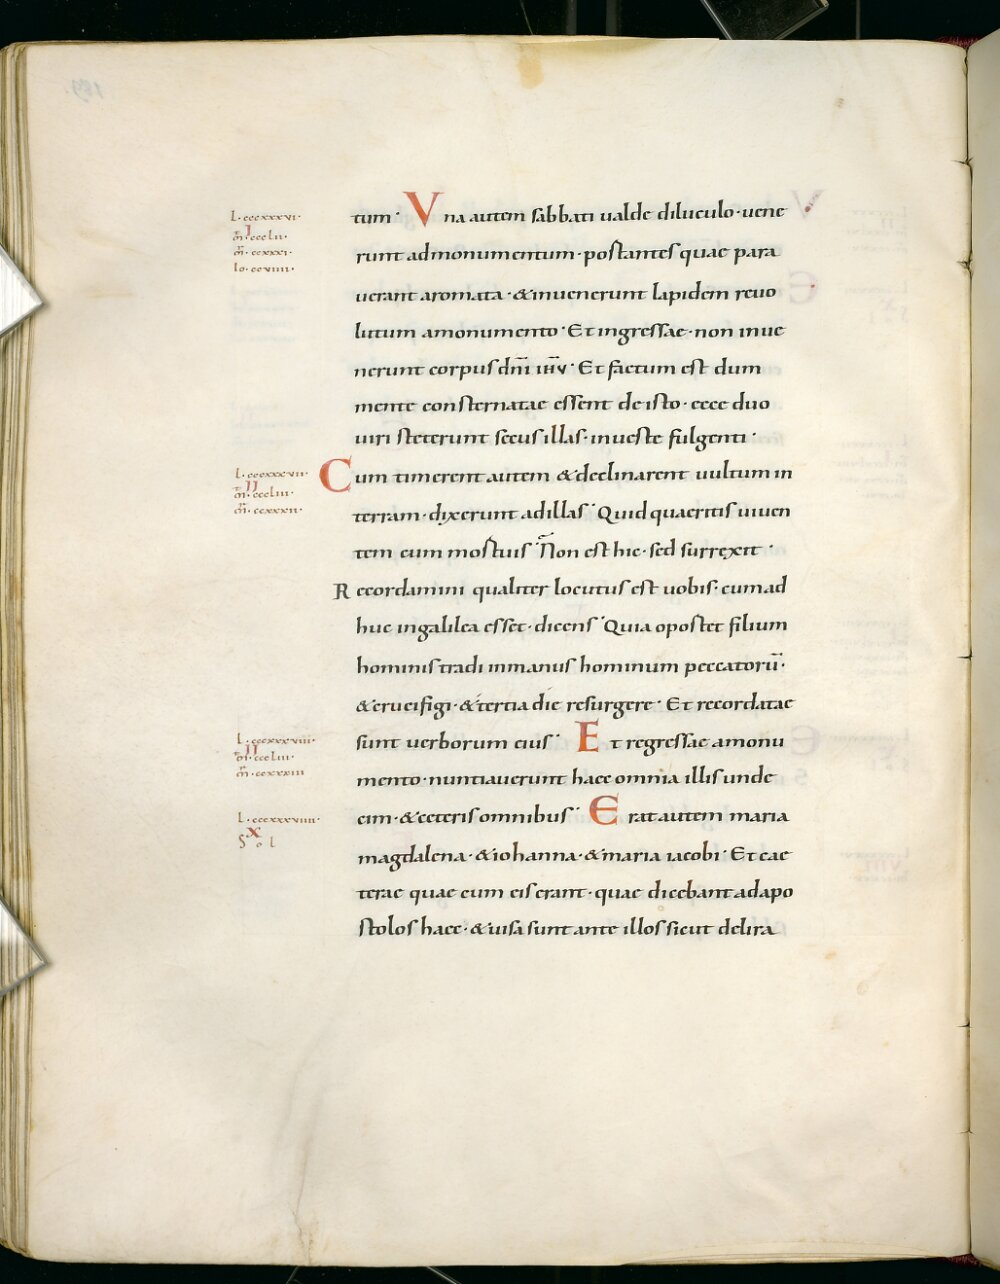 L·cccxxxvi·
I
m̅·ccclii·
m̅·ccxxxi·
Io·ccviiii·
tum· Una autem sabbati ualde diluculo· uene
runt ad monumentum· portantes quae para
uerant aromata· & inuenerunt lapidem reuo
lutum a monumento· Et ingressae· non inue
nerunt corpus dn̅i ih̅u· Et factum est dum
mente consternatae essent de isto· ecce duo
uiri steterunt secus illas· in ueste fulgenti·
L·cccxxxvii·
II
m̅·cccliii·
m̅·ccxxxii·
Cum timerent autem & declinarent uultum in
terram· dixerunt ad illas· Quid quaeritis uiuen
tem cum mortuis· Non est hic· sed surrexit·
Recordamini qualiter locutus est uobis· cum ad
huc in galilea esset· dicens· Quia oportet filium
hominis tradi in manus hominum peccatoru̅·
& crucifigi· & tertia die resurgere· Et recordatae
L·cccxxxviii·
II
m̅·cccliii·
m̅·ccxxxiii
sunt uerborum eius· Et regressae a monu
mento· nuntiauerunt haec omnia illis unde
L·cccxxxviiii·
X
Sol
cim· & ceteris omnibus· Erat autem maria
magdalena· & iohanna· & maria iacobi· Et cae
terae quae cum eis erant· quae dicebant ad apo
stolos haec· & uisa sunt ante illos sicut delira